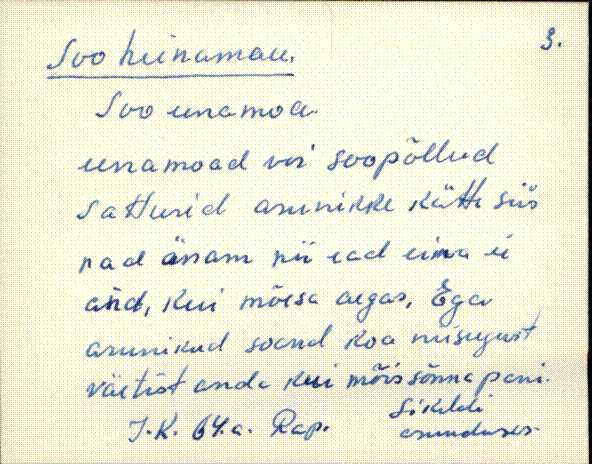 3.
Soo heinamaa.
Soo eenamoa.
eenamoad voi soopõllud
sattusid asunikke kätte siis
nad änam nii ead eina ei
and, kui mõisa aegas. Ega
asunikud soand koa nisugust
väetist anda kui mõis sõnna pani.
J.K. 64.a. Rap. Sikeldi
asunduses.